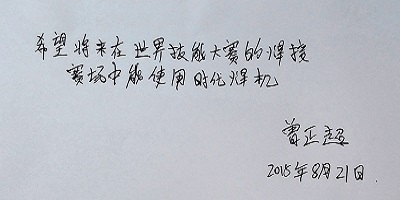 希望将来在世界技能大赛的焊接
赛场中能使用时代焊机
曾正超
2015年8月21日.